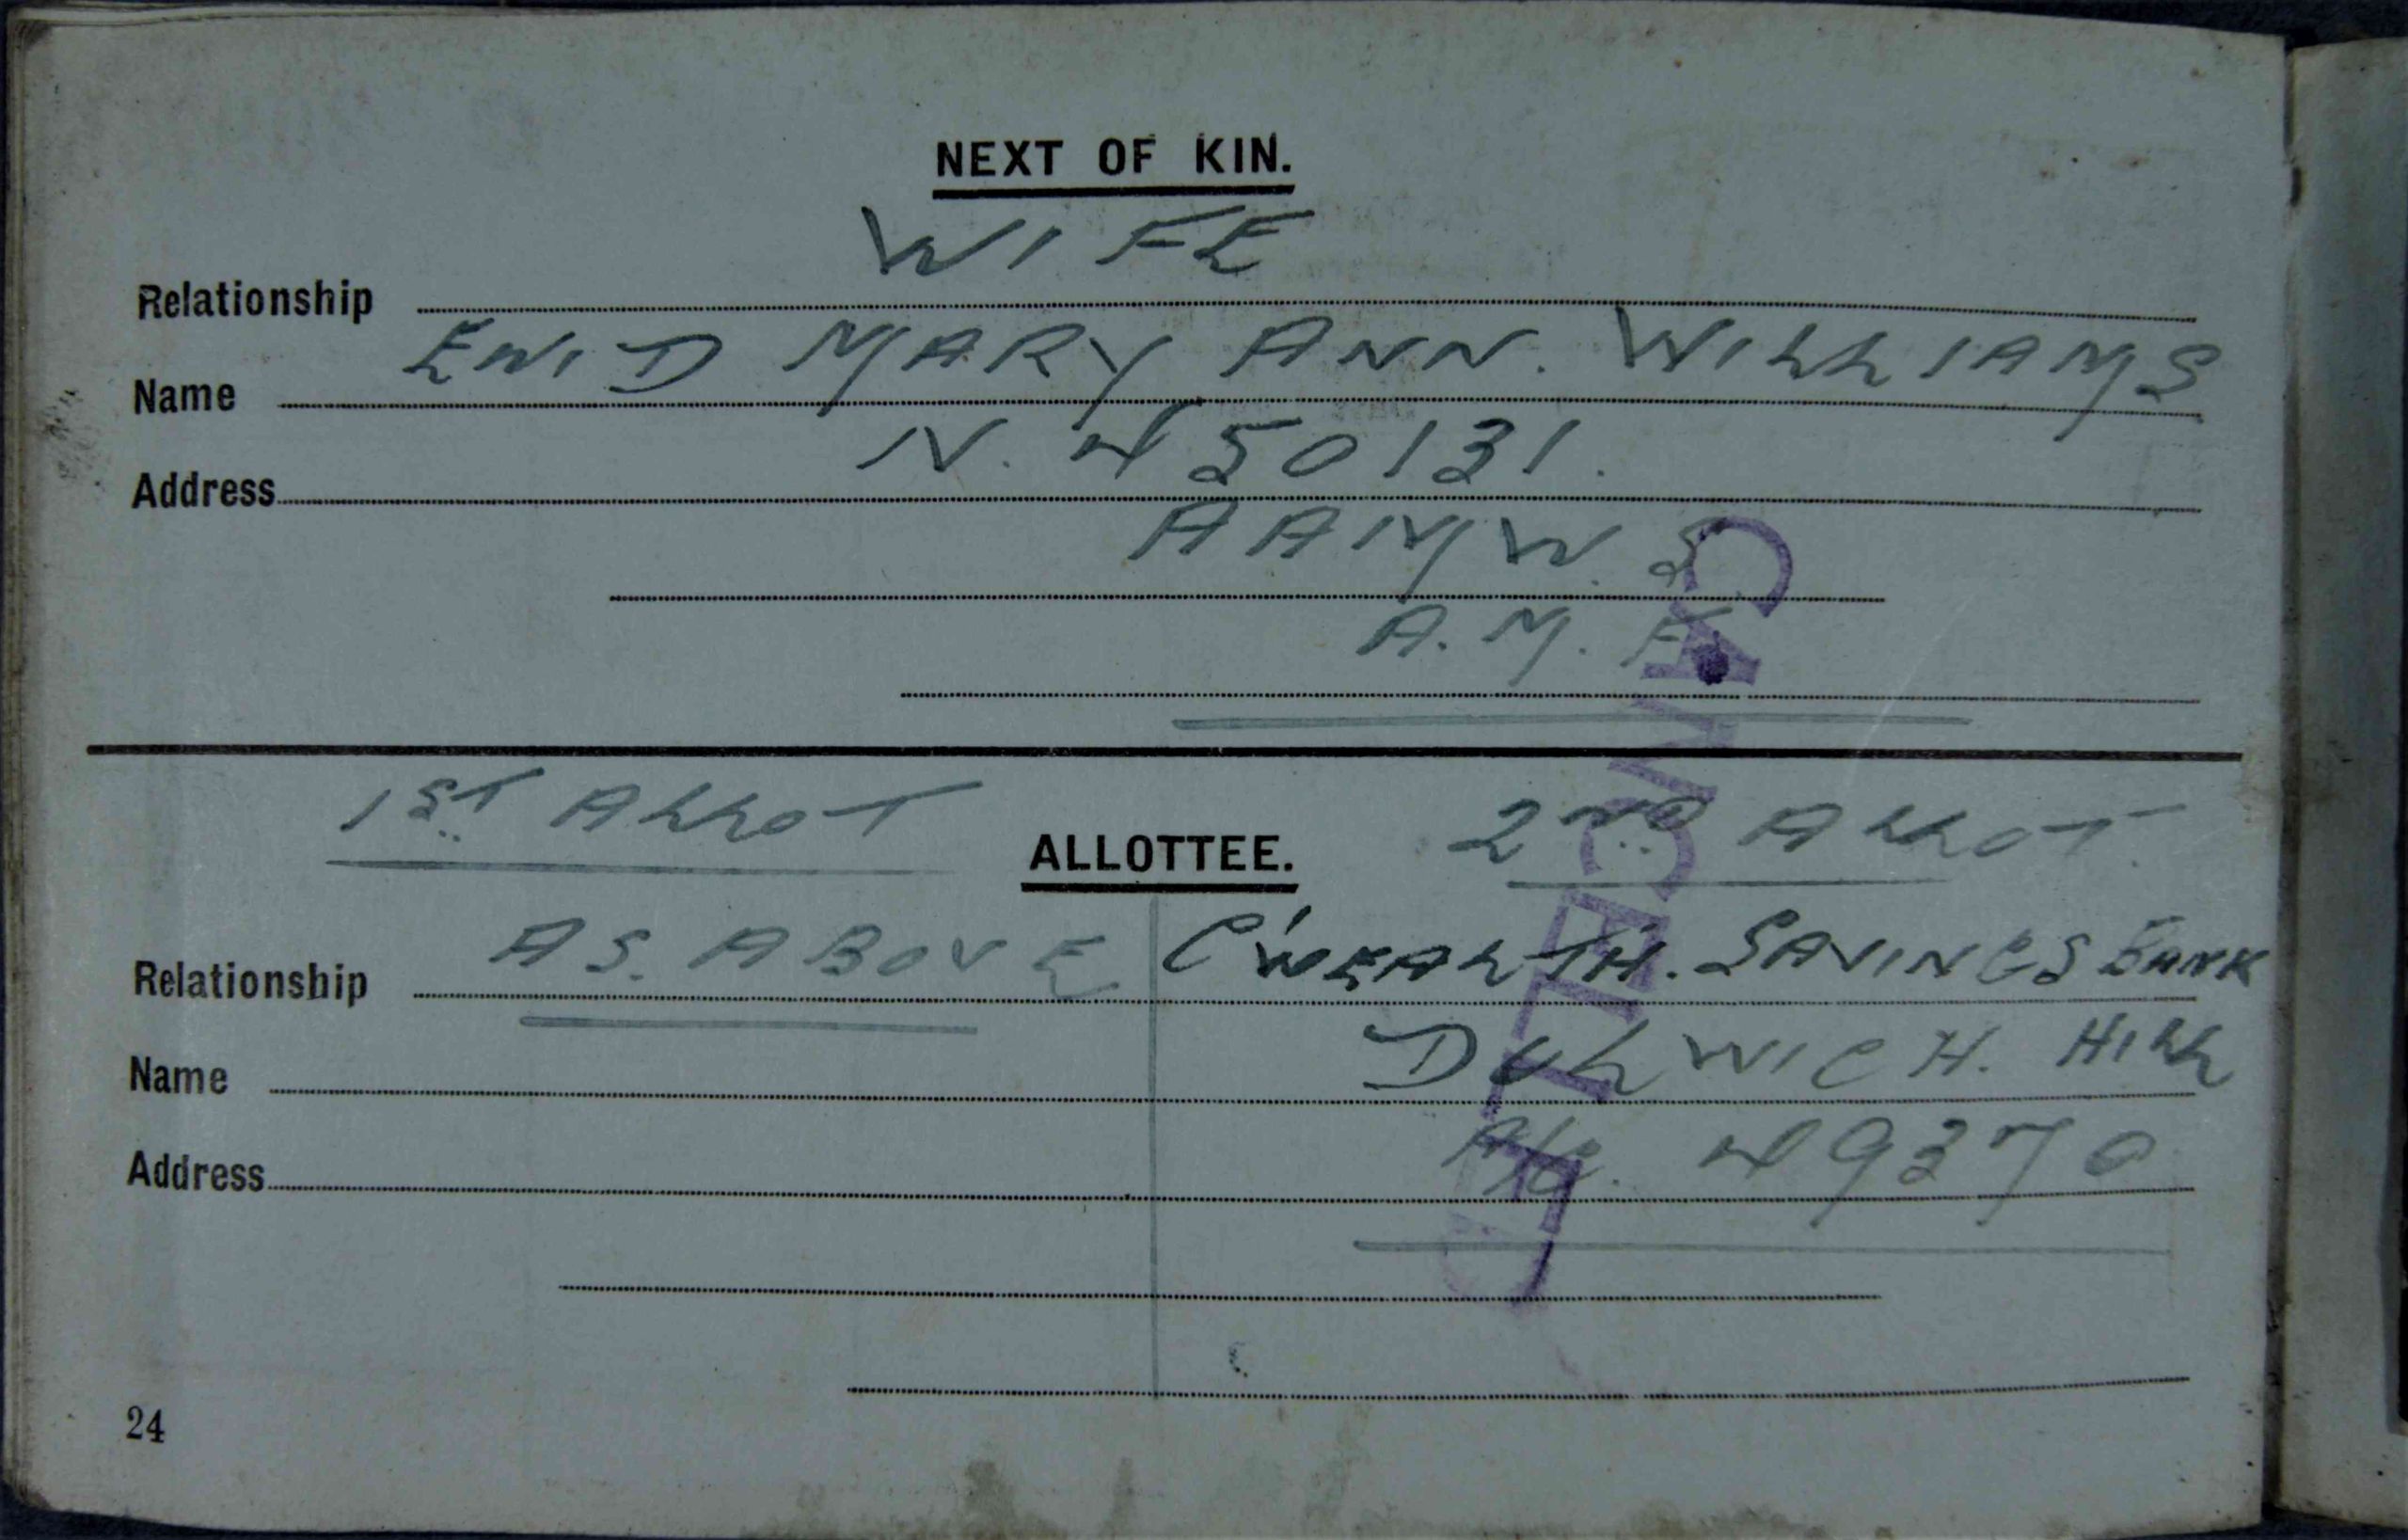 NEXT OF KIN.
WIFE
Relationship
ENID MARY ANN. WILLIAMS
Name
N. 450131.
Address
AAMW.S
A.M.F.
1ST ALLOT
2ND ALLOT.
ALLOTTEE.
Relationship AS. ABOVE C'WEALTH. SAVINGS BANK
Name DULWICH. HILL
Address A/C. 49370
CANCELLED
24